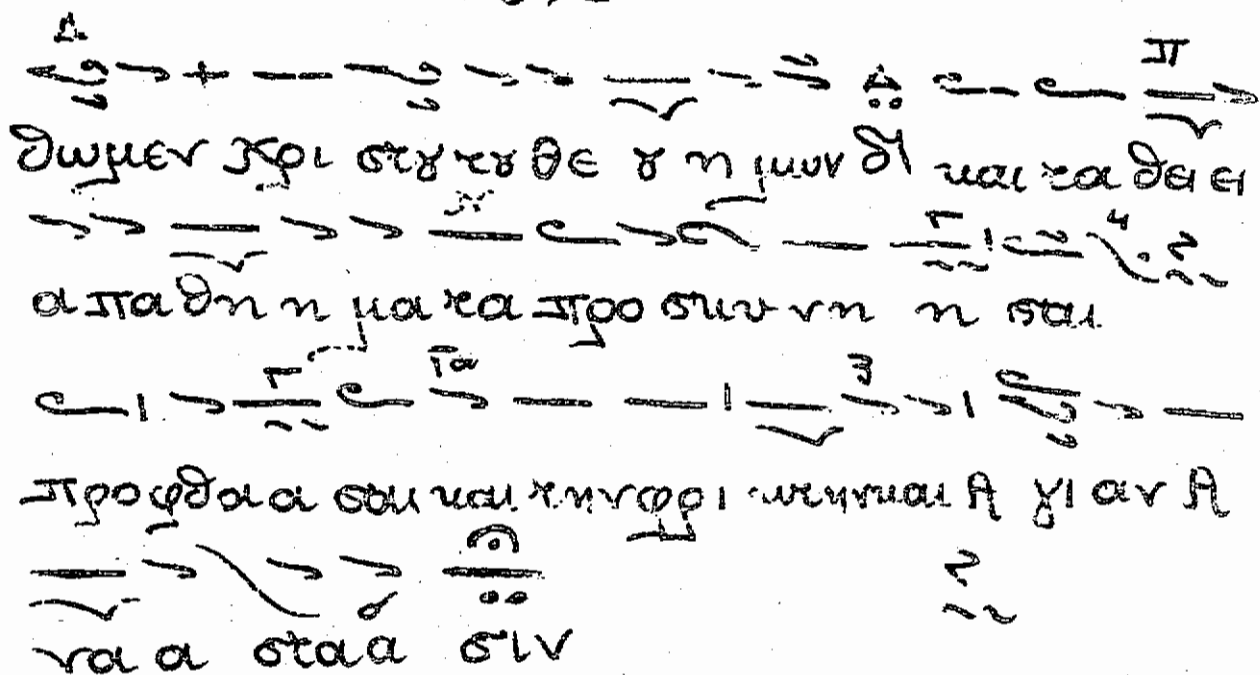 θωμεν Χρι στȣ τȣ θε ȣ η μων δι και τα θει ει
α πα θη η μα τα προ σκυ νη η σαι
προ φθα α σαι και την φρι κτην και Α γι αν Α
να α στα α σιν